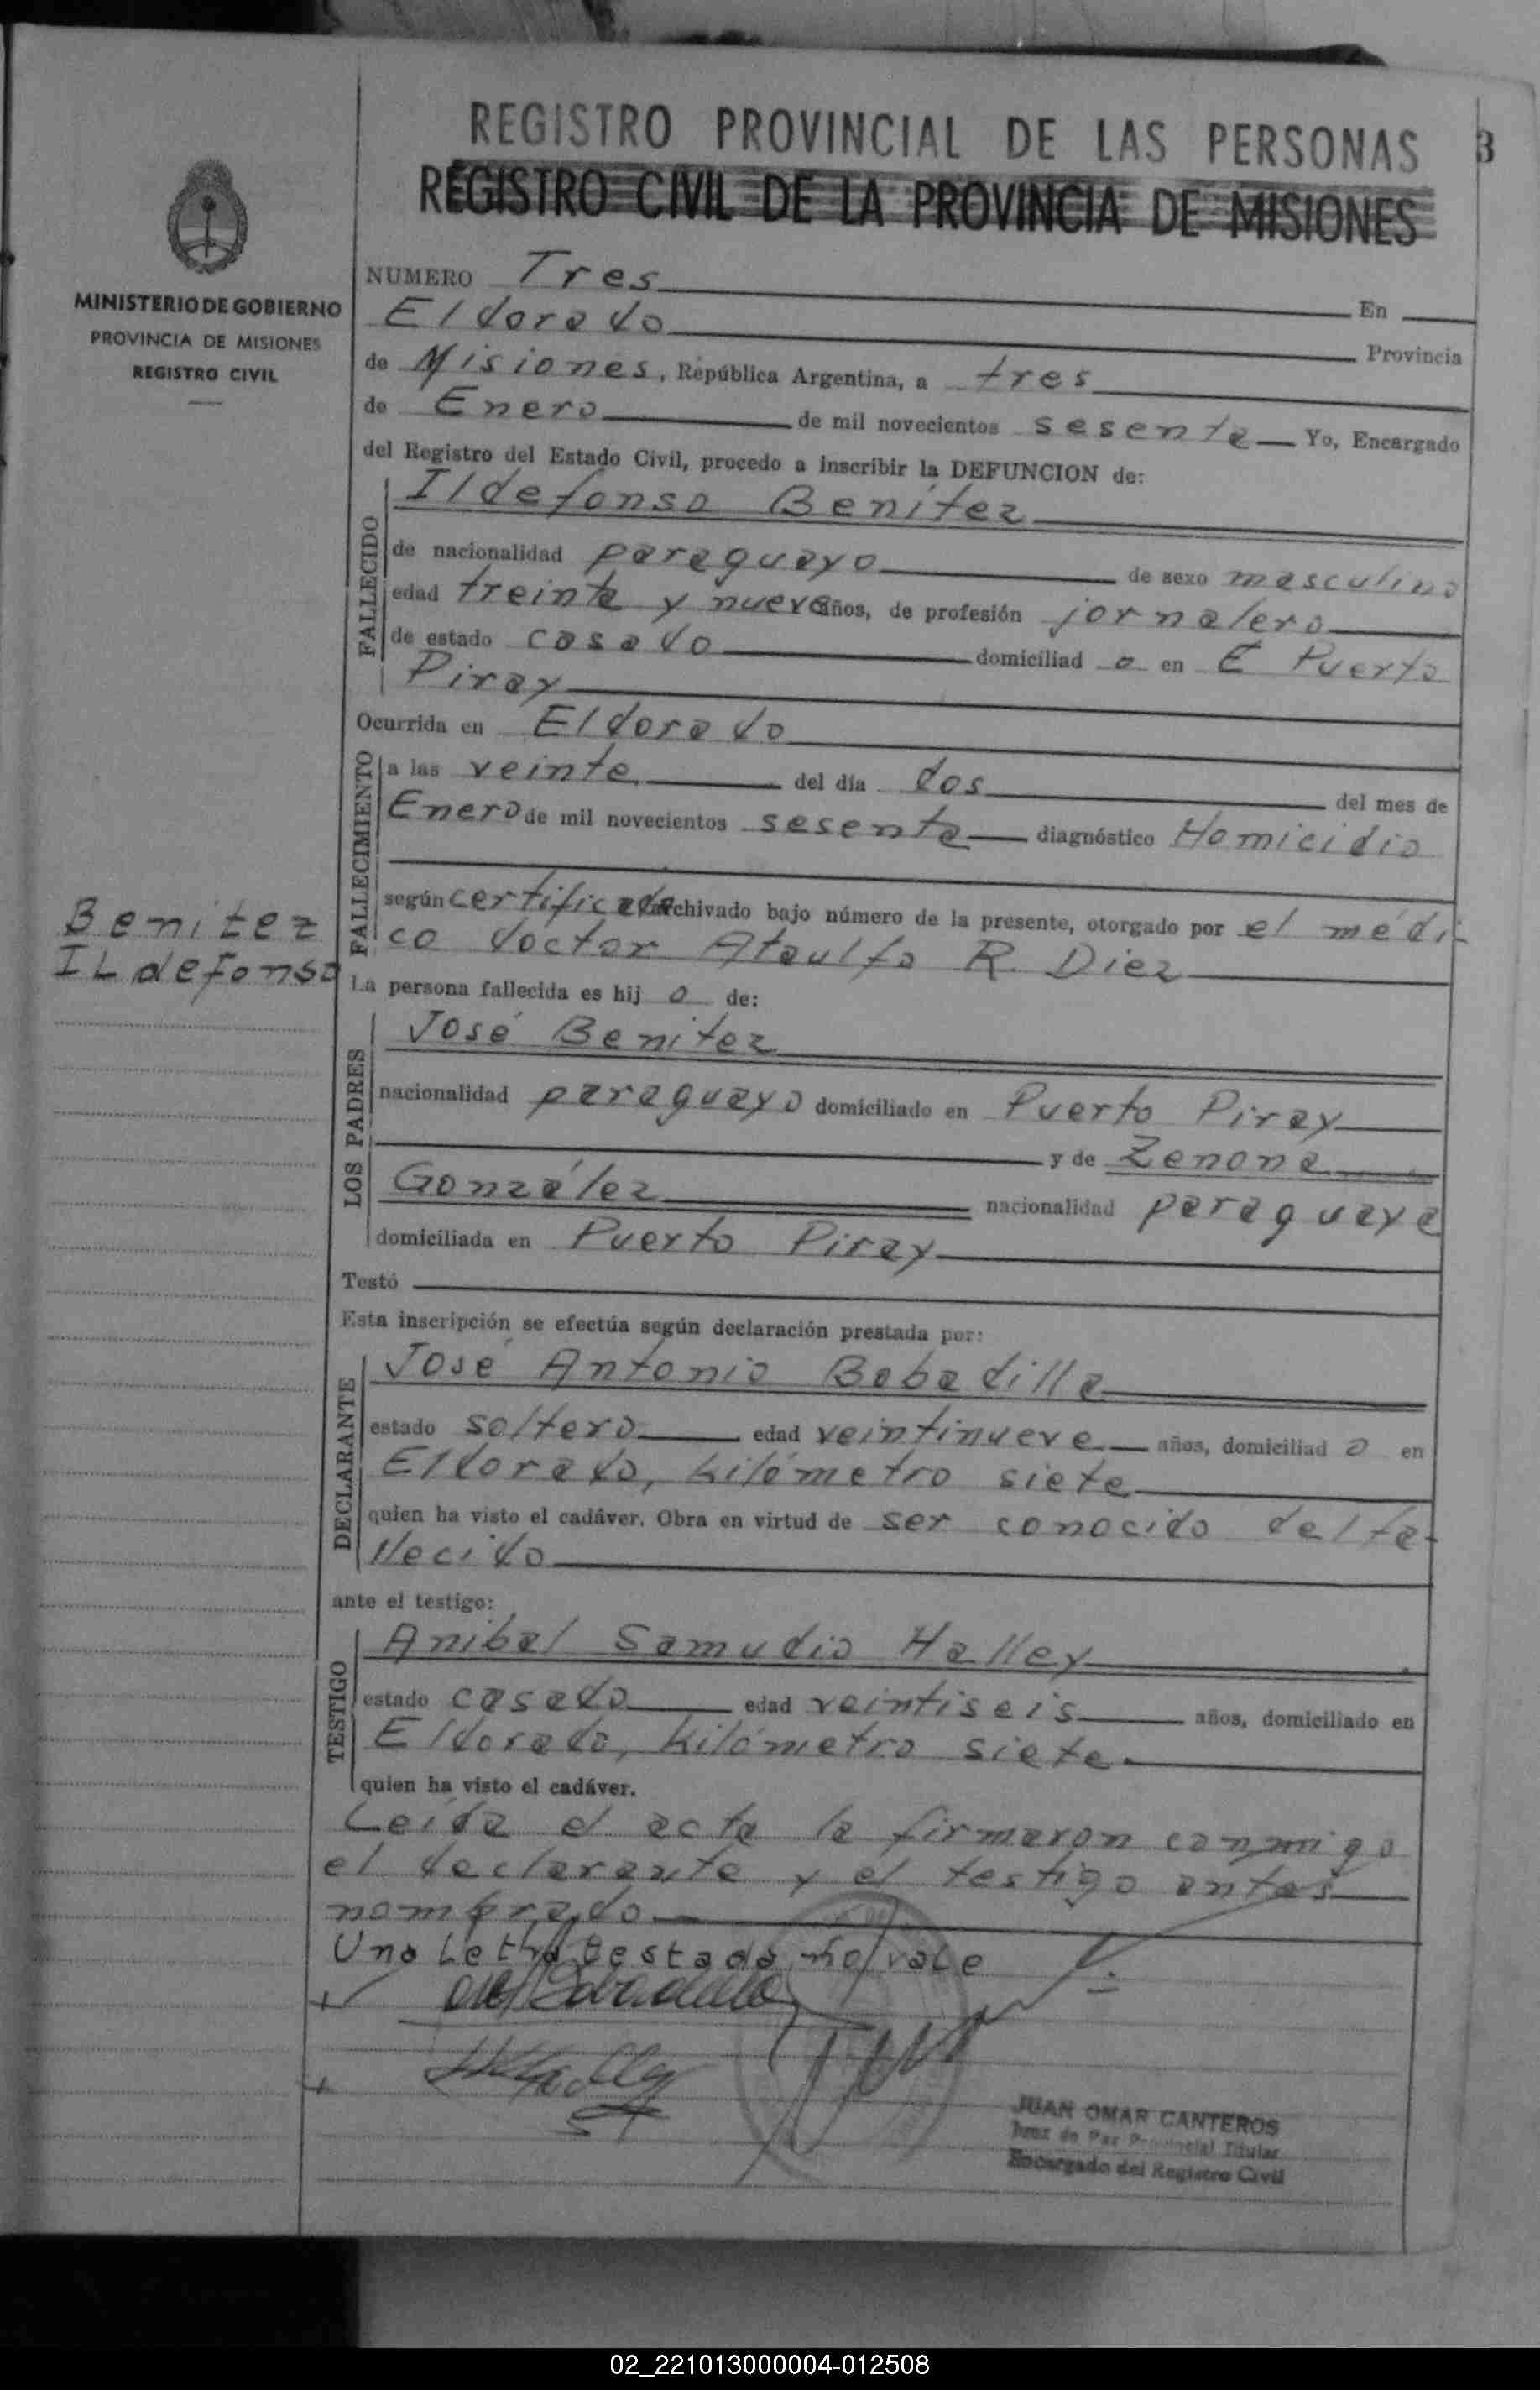 REGISTRO PROVINCIAL DE LAS PERSONAS
3
REGISTRO CIVIL DE LA PROVINCIA DE MISIONES
MINISTERIO DE GOBIERNO
PROVINCIA DE MISIONES
REGISTRO CIVIL
NUMERO Tres En
Eldorado Provincia
de Misiones, República Argentina, a tres
de Enero de mil novecientos sesenta Yo, Encargado
del Registro del Estado Civil, procedo a inscribir la DEFUNCION de:
FALLECIDO
Ildefonso Benítez
de nacionalidad paraguayo de sexo masculino
edad treinta y nueve años, de profesión jornalero
de estado casado domiciliad o en E Puerto
Piray
Ocurrida en Eldorado
FALLECIMIENTO
a las veinte del día dos del mes de
Enero de mil novecientos sesenta diagnóstico Homicidio
según certificado archivado bajo número de la presente, otorgado por el médi-
co doctor Ataulfo R. Diez
Benitez
ILdefonso
La persona fallecida es hij o de:
LOS PADRES
José Benitez
nacionalidad paraguayo domiciliado en Puerto Piray
y de Zenona
González nacionalidad paraguaya
domiciliada en Puerto Piray
Testó
Esta inscripción se efectúa según declaración prestada por:
DECLARANTE
José Antonio Bobadilla
estado soltero edad veintinueve años, domiciliad o en
Eldorado, kilómetro siete
quien ha visto el cadáver. Obra en virtud de ser conocido del fa-
llecido
ante el testigo:
TESTIGO
Anibal Samudio Halley
estado casado edad veintiseis años, domiciliado en
Eldorado, kilómetro siete.
quien ha visto el cadáver.
Leída el acta la firmaron conmigo
el declarante y el testigo antes
nombrado
Una Letra testada no vale
JUAN OMAR CANTEROS
Juez de Paz Provincial Titular
Encargado del Registro Civil
02_221013000004-012508